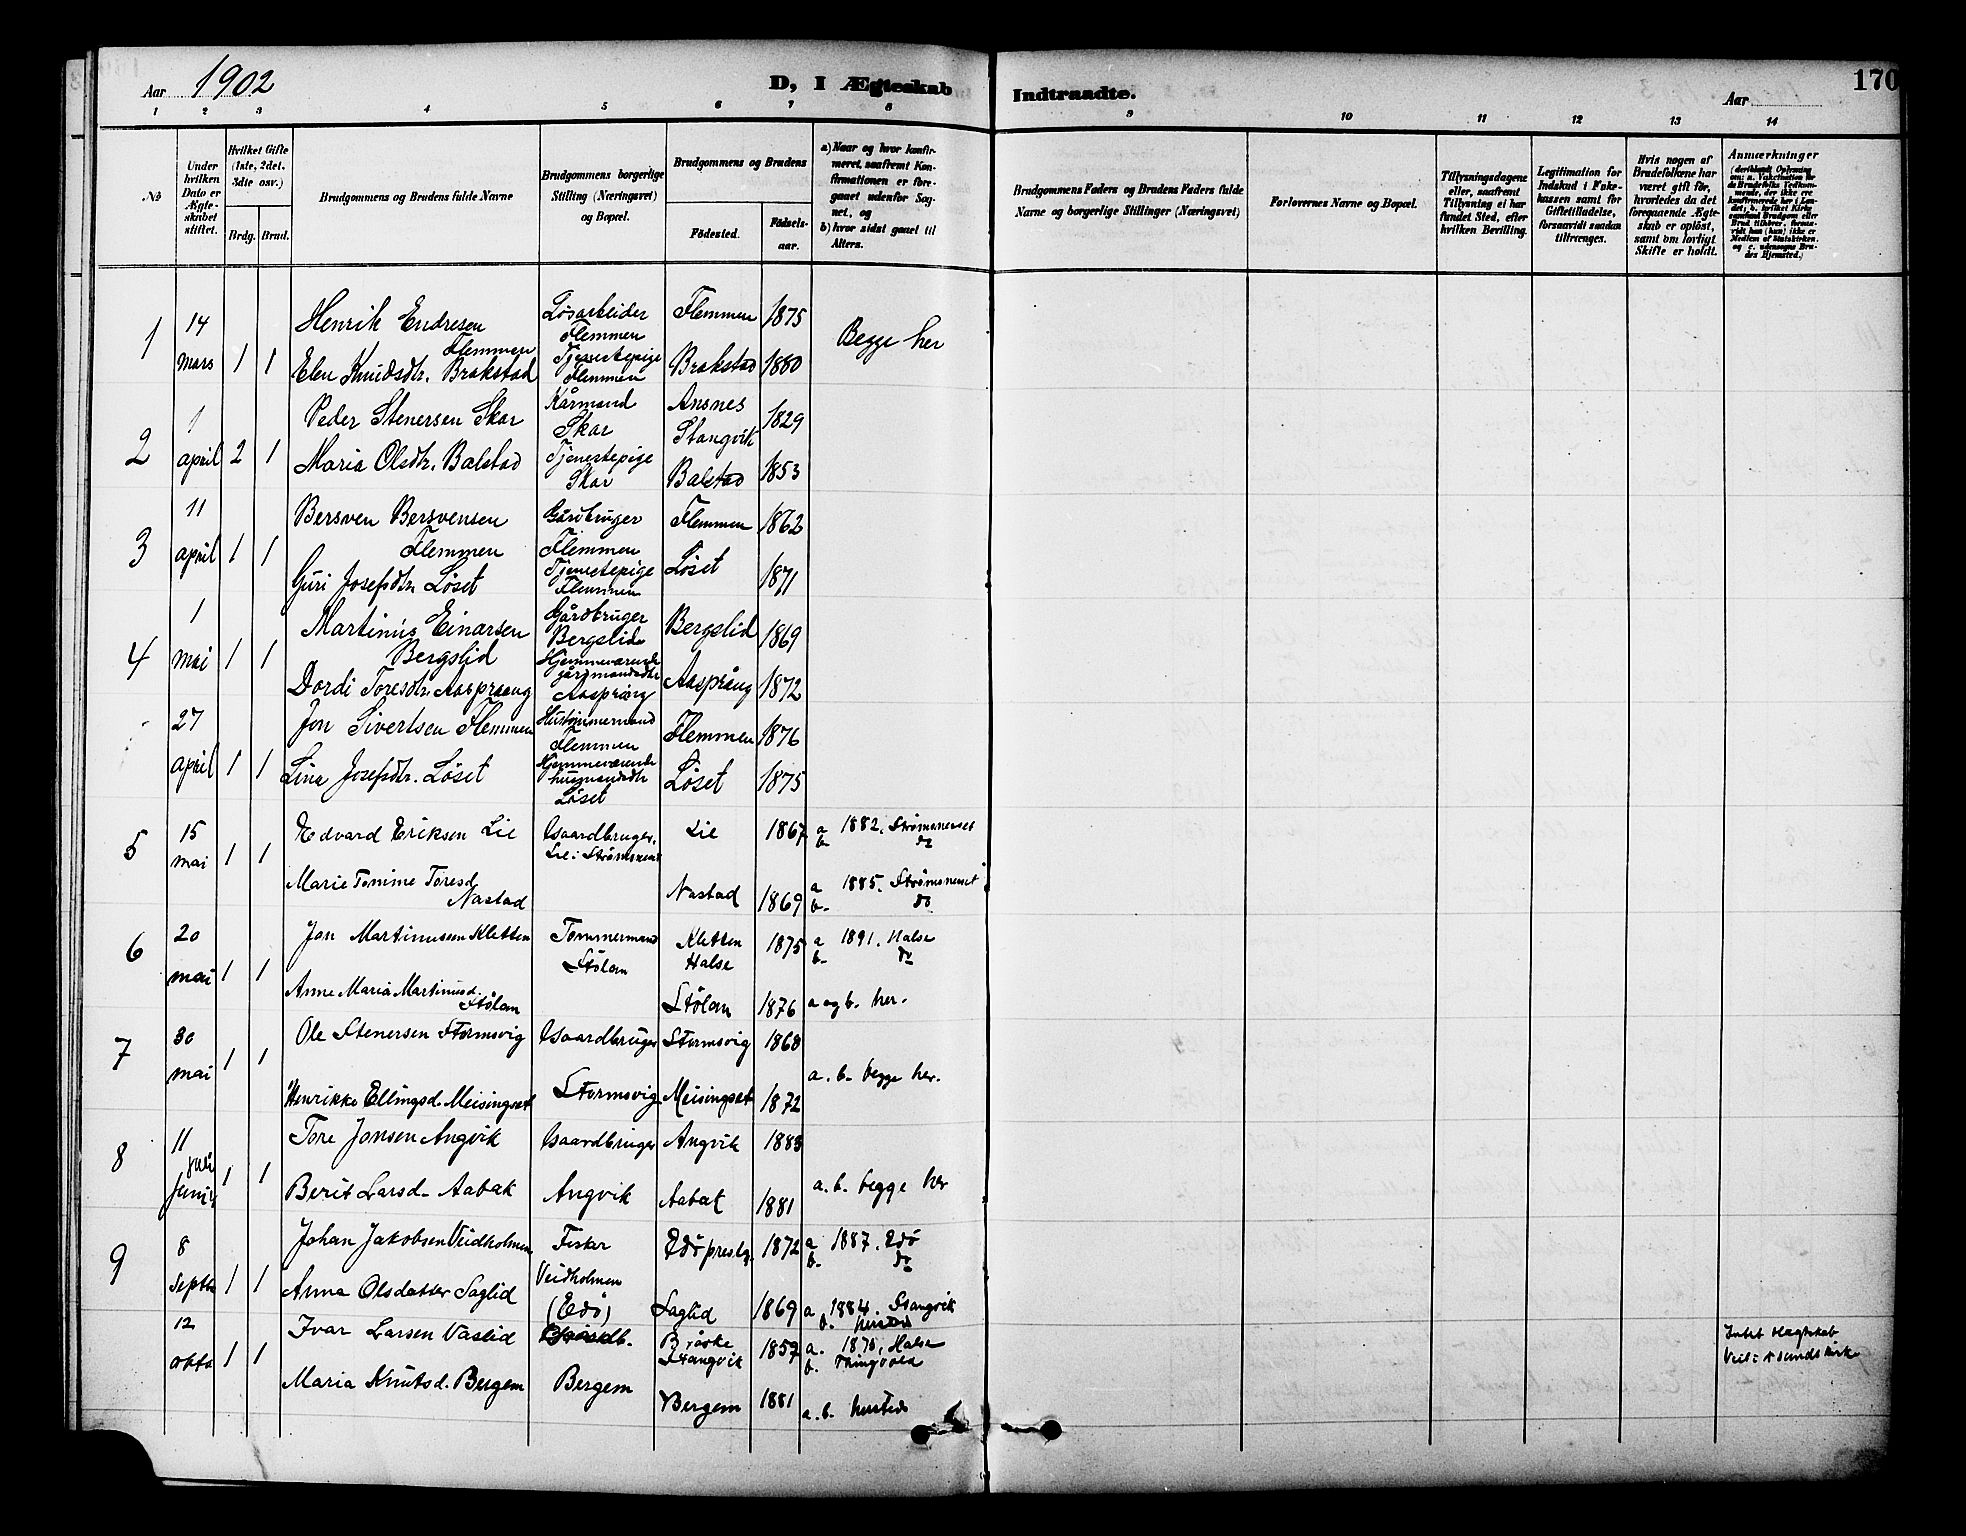 Aar 1902
D, I Ægteskab Indtraadte.
Aar
170
1 2 3 4 5 6 7 8 9 10 11 12 13 14
No
Under hvilken Dato er Ægteskabet stiftet.
Hvilket Gifte (1ste, 2det, 3die osv.)
Brdg. Brud.
Brudgommens og Brudens fulde Navne
Brudgommens borgerlige Stilling (Næringsvei) og Bopæl.
Brudgommens og Brudens
Fødested. Fødselsaar.
a) Naar og hvor konfirmeret, saafremt Konfirmationen er foregaaet udenfor Sognet, og
b) hvor sidst gaaet til Alters.
Brudgommens Faders og Brudens Faders fulde Navne og borgerlige Stillinger (Næringsvei)
Forlovernes Navne og Bopæl.
Tillysningsdagene eller, saafremt Tillysning ei har fundet Sted, efter hvilken Bevilling.
Legitimation for Indskud i Enkekassen samt for Giftetilladelse, forsaavidt saadan tiltrænges.
Hvis nogen af Brudefolkene har været gift før, hvorledes da det foregaaende Ægteskab er opløst, samt om lovligt Skifte er holdt.
Anmærkninger
1 14 mars 1 1
Henrik Endresen Flemmen Løsarbeider Flemmen Flemmen 1875
Begge her
Elen Knudsdtr. Brakstad Tjenestepige Flemmen Brakstad 1880
2 1 april 2 1
Peder Stenersen Skar Kårmand Skar Ansnes Stangvik 1829
Maria Olsdtr. Balstad Tjenestepige Skar Balstad 1853
3 11 april 1 1
Bersven Bersvensen Flemmen Gårdbruger Flemmen Flemmen 1862
Guri Josefsdtr. Løset Tjenestepige Flemmen Løset 1871
4 1 mai 1 1
Martinus Einarsen Bergslid Gårdbruger Bergslid Bergslid 1869
Dordi Toresdtr. Aasprang Hjemmeværende gårdmandsdtr Aasprang Aasprång 1872
27 april 1 1
Jon Sivertsen Flemmen Hustømmermand Flemmen Flemmen 1876
Lina Josefsdtr. Løset Hjemmeværende husmandsdtr Løset Løset 1875
5 15 mai 1 1
Edvard Eriksen Lie Gaardbruger, Lie i Strømsneset Lie 1867 a 1882. Strømsneset b- do
Marie Tomine Toresd. Nastad Nastad 1869 a 1885. Strømsneset b- do
6 20 mai 1 1
Jon Martinussen Kletten Tømmermand Stølan Kletten Halse 1875 a 1891. Halse b- do
Anne Maria Martinusd. Stølan Stølan 1876 a og b. her.
7 30 mai 1 1
Ole Stenersen Stormsvig Gaardbruger Stormsvig 1868
a. b. begge her.
Henrikke Ellingsd. Meisingset Stormsvig Meisingset 1872
8 11 juli 1 1
Tore Jonsen Angvik Gaardbruger Angvik 1883
a. b. begge her
Berit Larsd. Aabak Angvik Aabak 1881
9 8 septbr 1 1
Johan Jakobsen Veidholmen Fisker Edø prestg. 1872 a 1887. Edø b- do
Anna Olsdatter Saglid Veidholmen (Edø) Saglid 1869 a 1884. Stangvik b. hersteds
12 oktb 1 1
Ivar Larsen Vaslid Bråske Stangvik 1857 a. Halse b. Thingvold
Maria Knutsd. Bergem Bergem Bergem 1881 a. b. hersteds